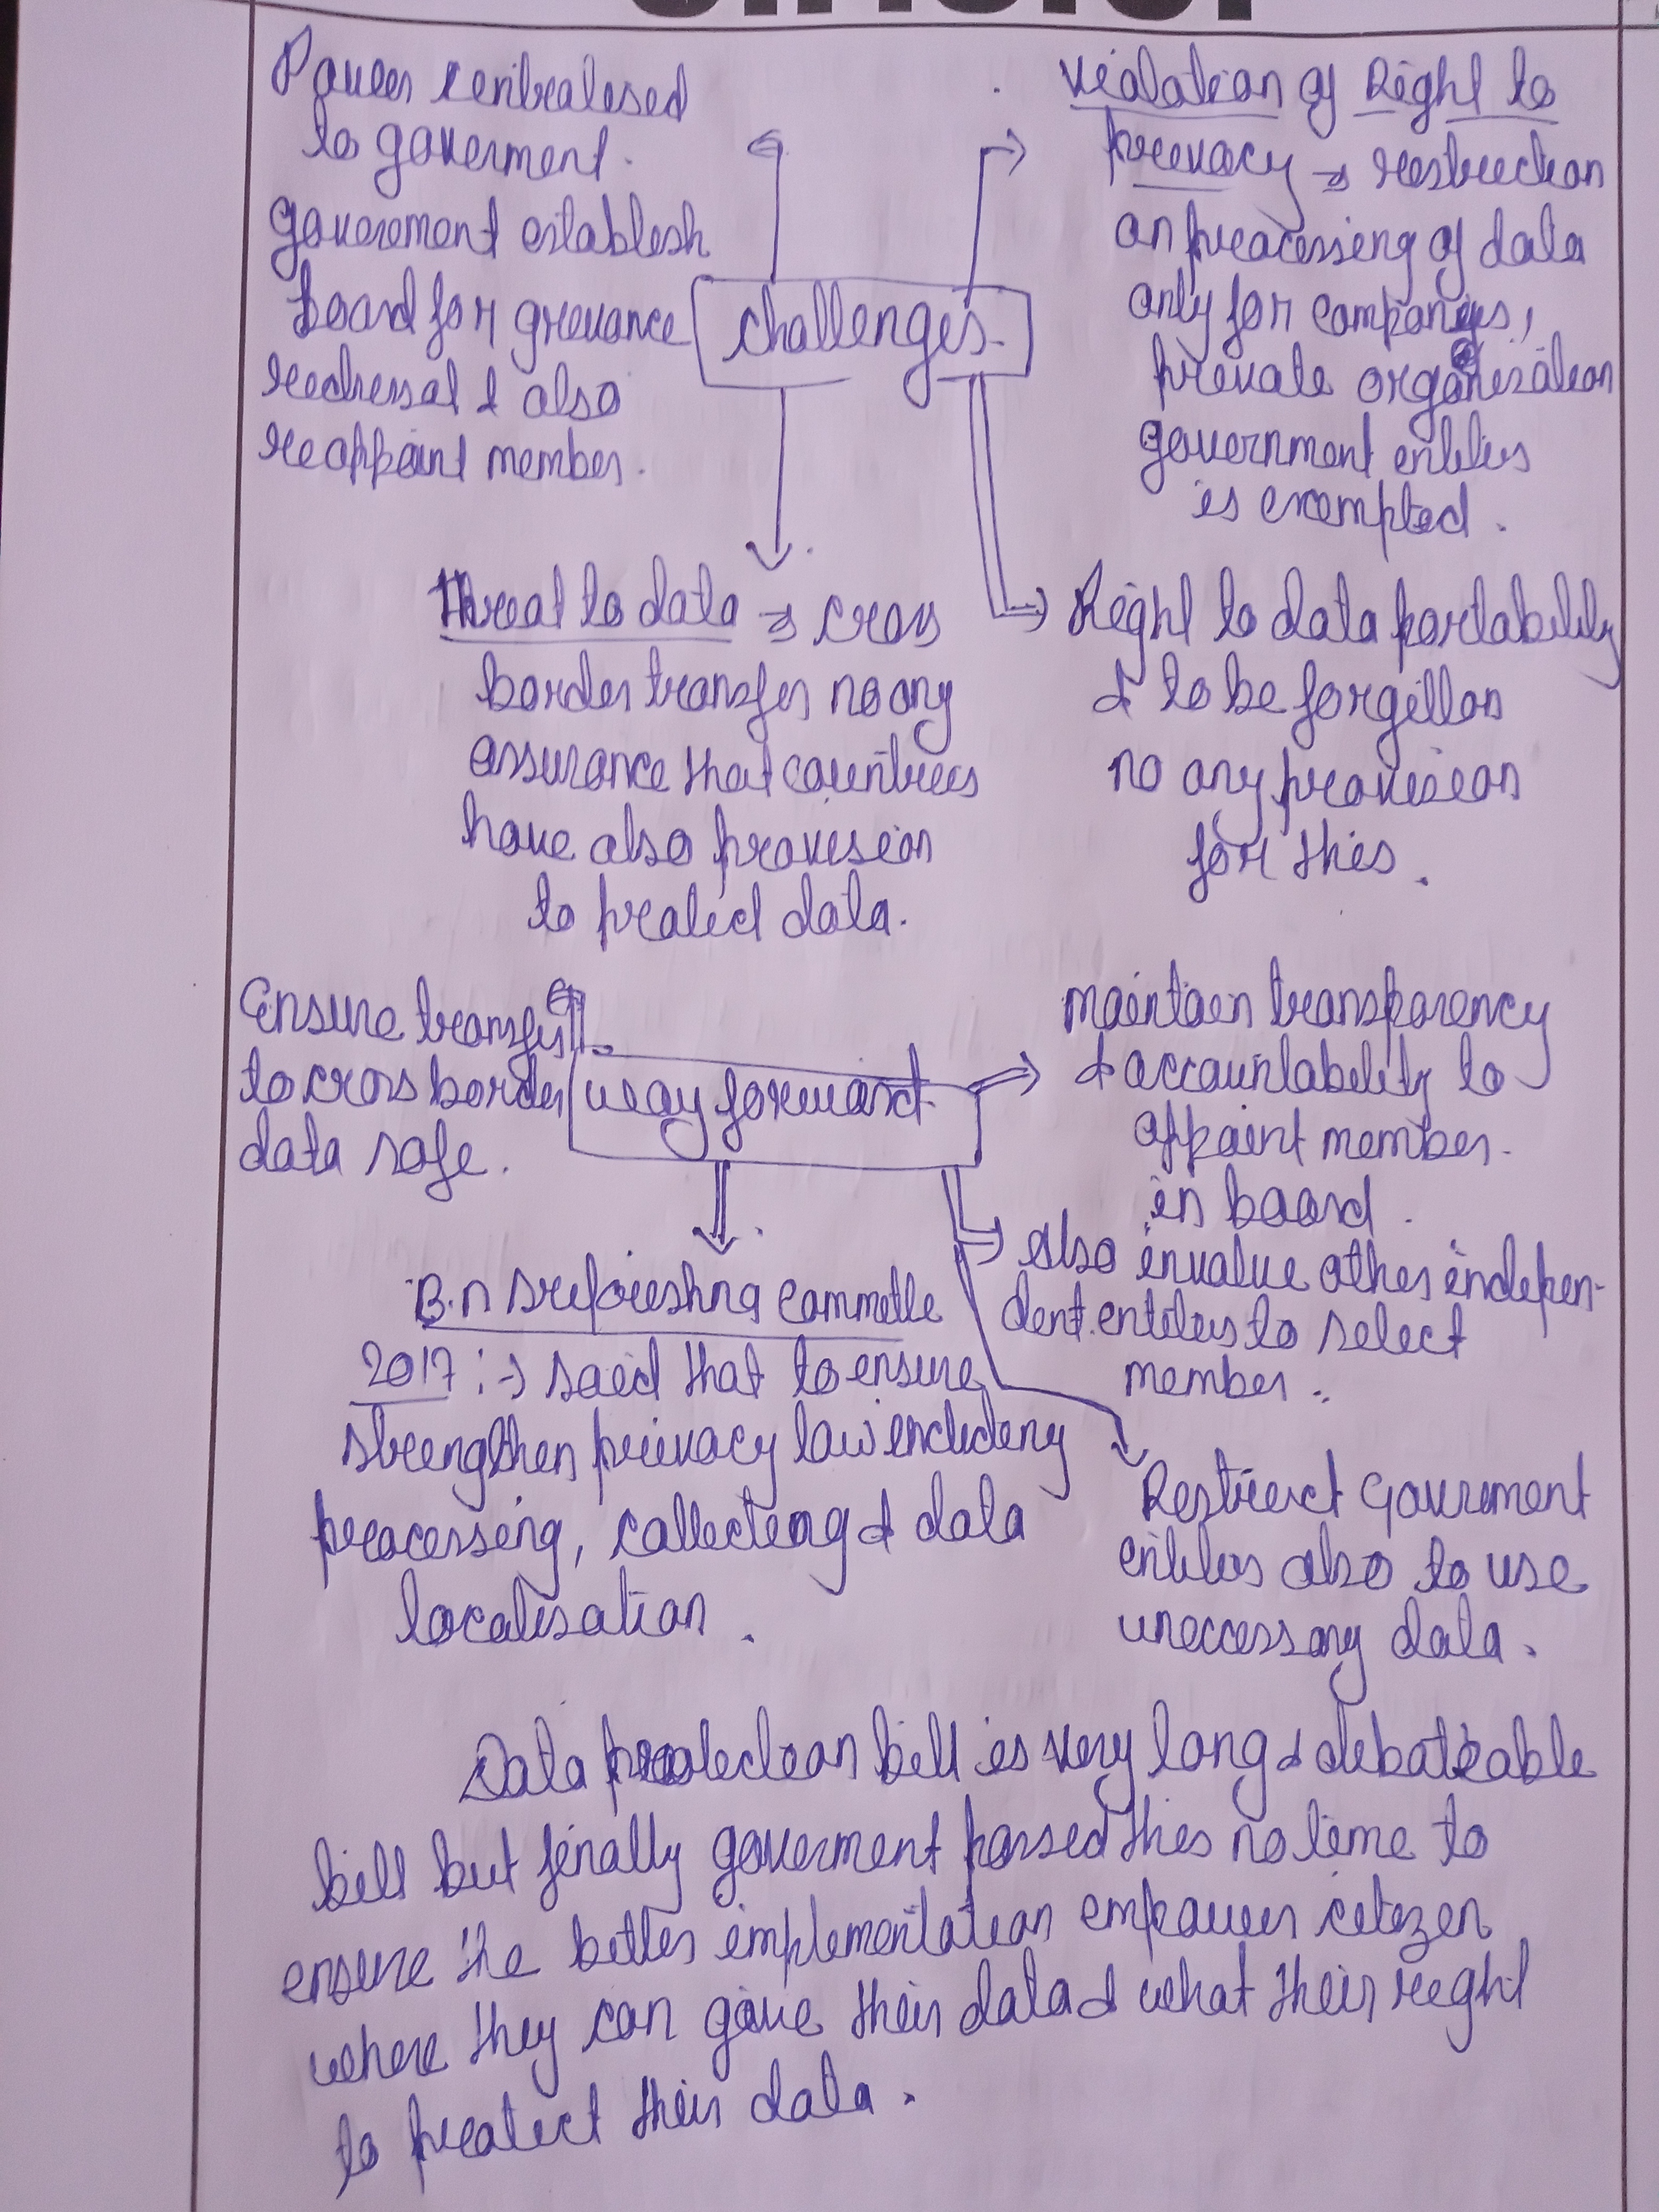 Power centralised
to goverment.
goverement establish
board for grievance
redressal & also
reappoint member.
challenges.
Violation of Right to
privacy → restriction
on processing of data
only for companies,
private organisation
government entities
is exempted.
Threat to data → cross
border transfer no any
assurance that countries
have also provision
to protect data.
Right to data portability
& to be forgotten
no any provision
for this.
Ensure transfer
to cross border
data safe.
way forward.
maintain transparency
& accountability to
appoint member.
in board.
also involve other indepen-
dent entities to select
member.
B.n Committe
2017 :→ said that to ensure
strengthen privacy law including
processing, collecting & data
localisation.
Restrict Goverment
entities also to use
uneccessary data.
Data protection bill is very long & debateable
bill but finally goverment passed this no time to
ensure the better implementation empower citizen
where they can give their data & what their right
to protect their data.